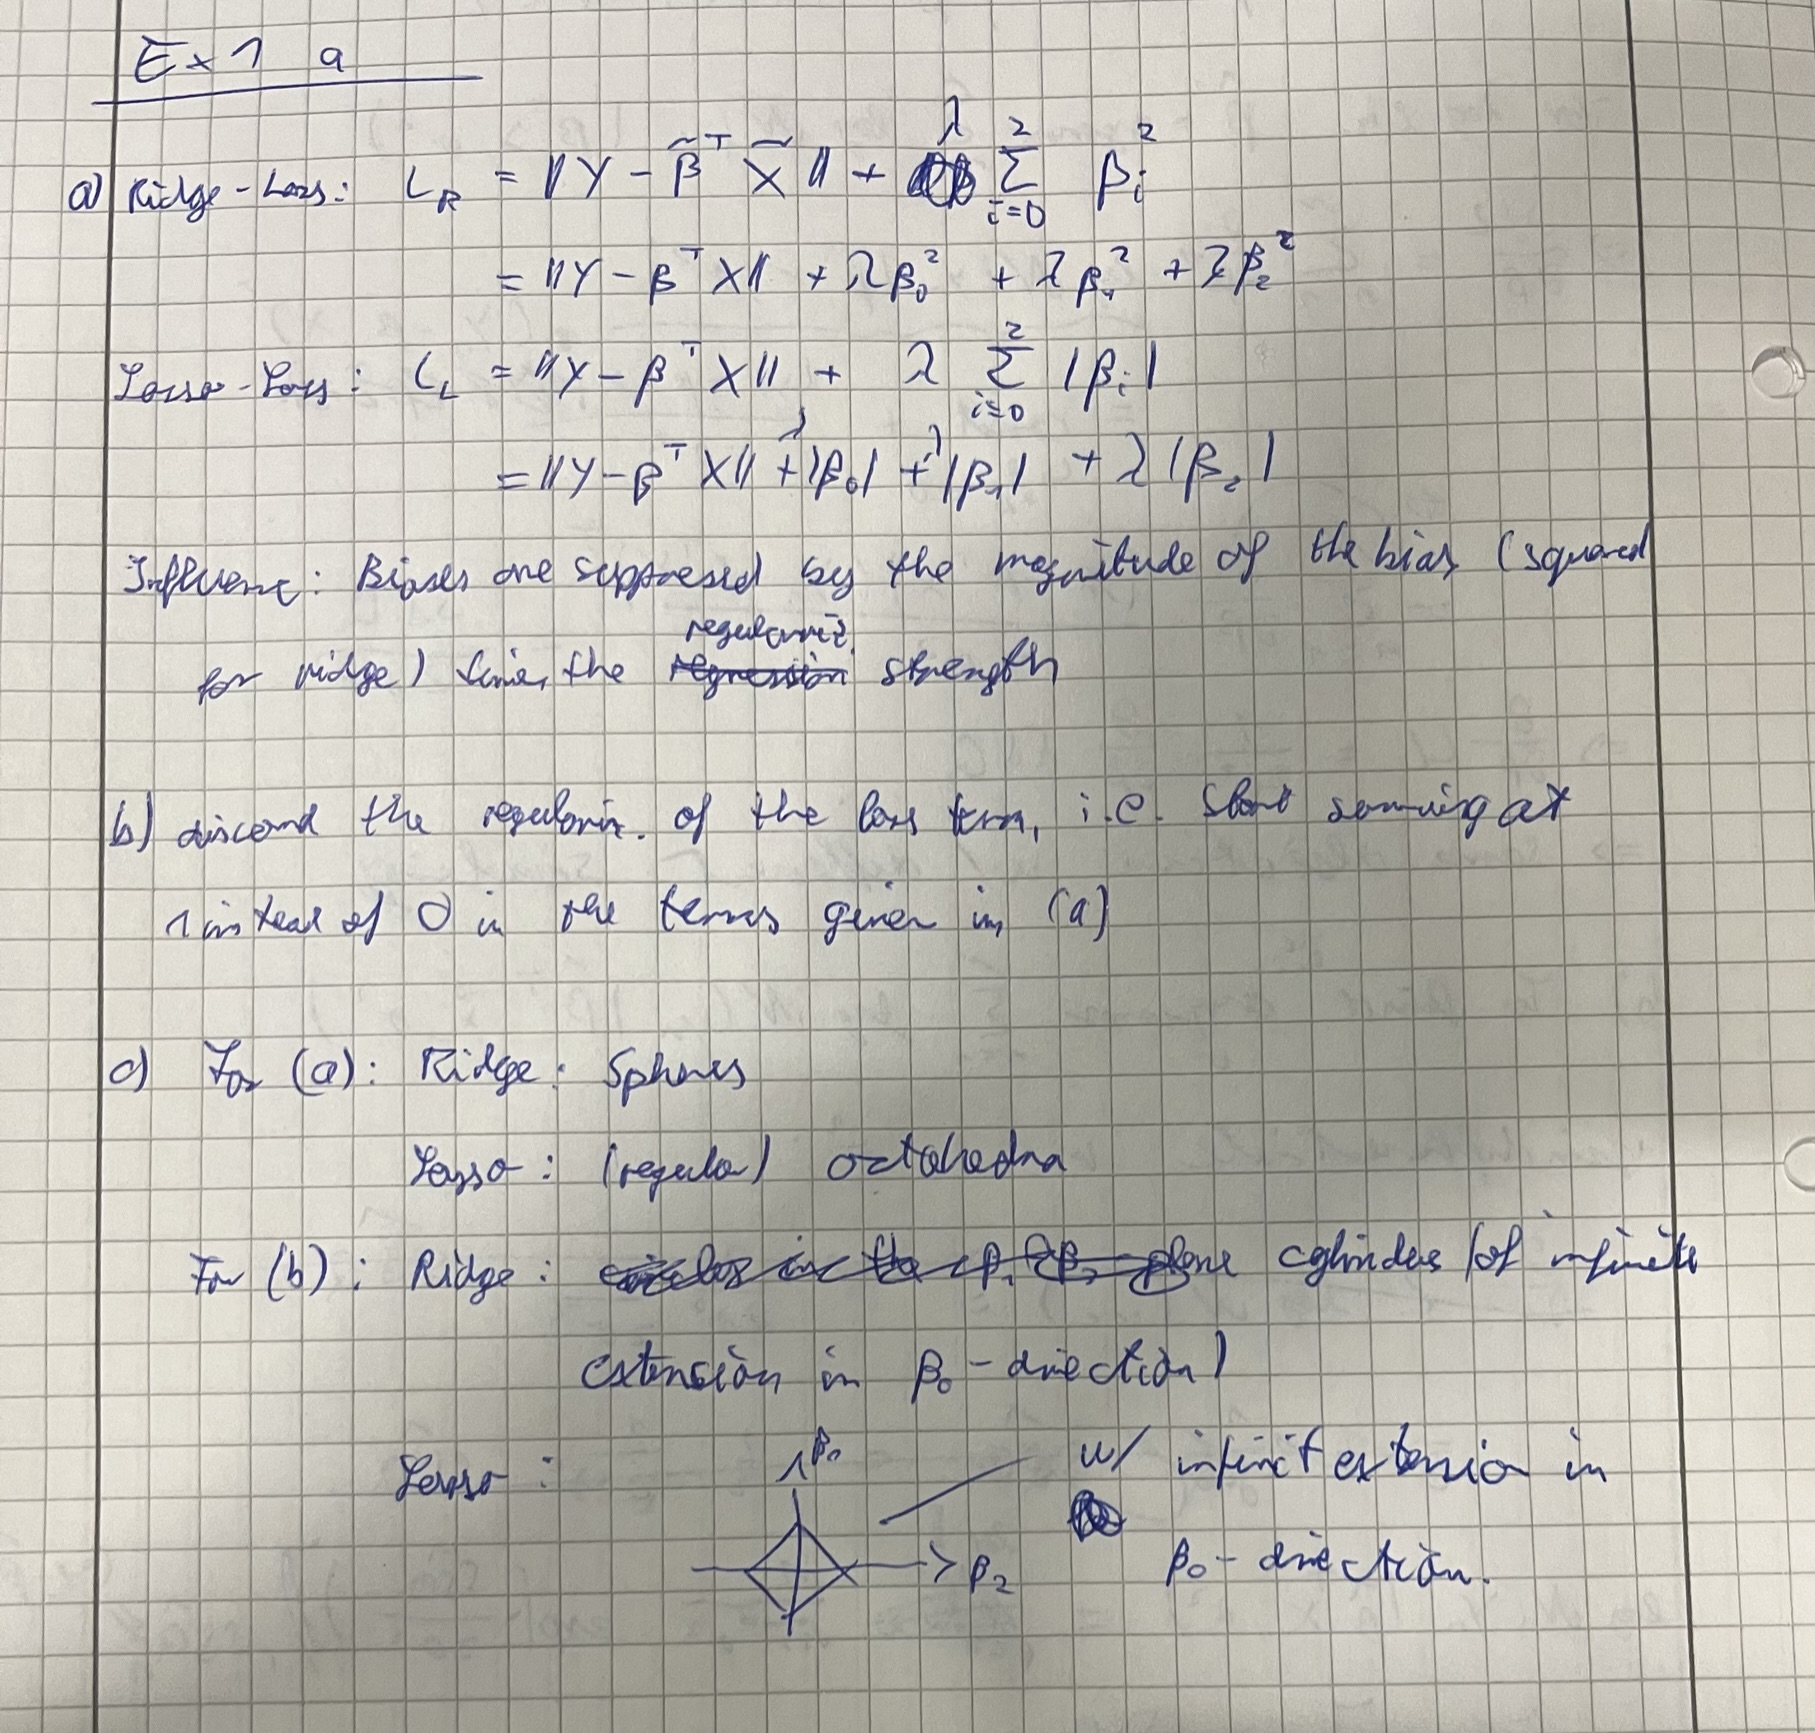 Ex 1 a
a) Ridge-Loss: L_R = ||Y - β̃^T X̃|| + λ Σ_{i=0}^{2} β_i^2
= ||Y - β^T X|| + λβ_0^2 + λβ_1^2 + λβ_2^2
Lasso-Loss: L_L = ||Y - β^T X|| + λ Σ_{i=0}^{2} |β_i|
= ||Y - β^T X|| + λ|β_0| + λ|β_1| + λ|β_2|
Influence: Biases are suppressed by the magnitude of the bias (squared
for ridge) times the regulariz. strength
b) discard the regulariz. of the loss term, i.e. start summing at
1 instead of 0 in the terms given in (a)
c) For (a): Ridge: Spheres
Lasso: (regular) octahedra
For (b): Ridge: cylinders (of infinite
extension in β_0-direction)
Lasso: β_1 w/ infinit extension in
β_2 β_0-direction.